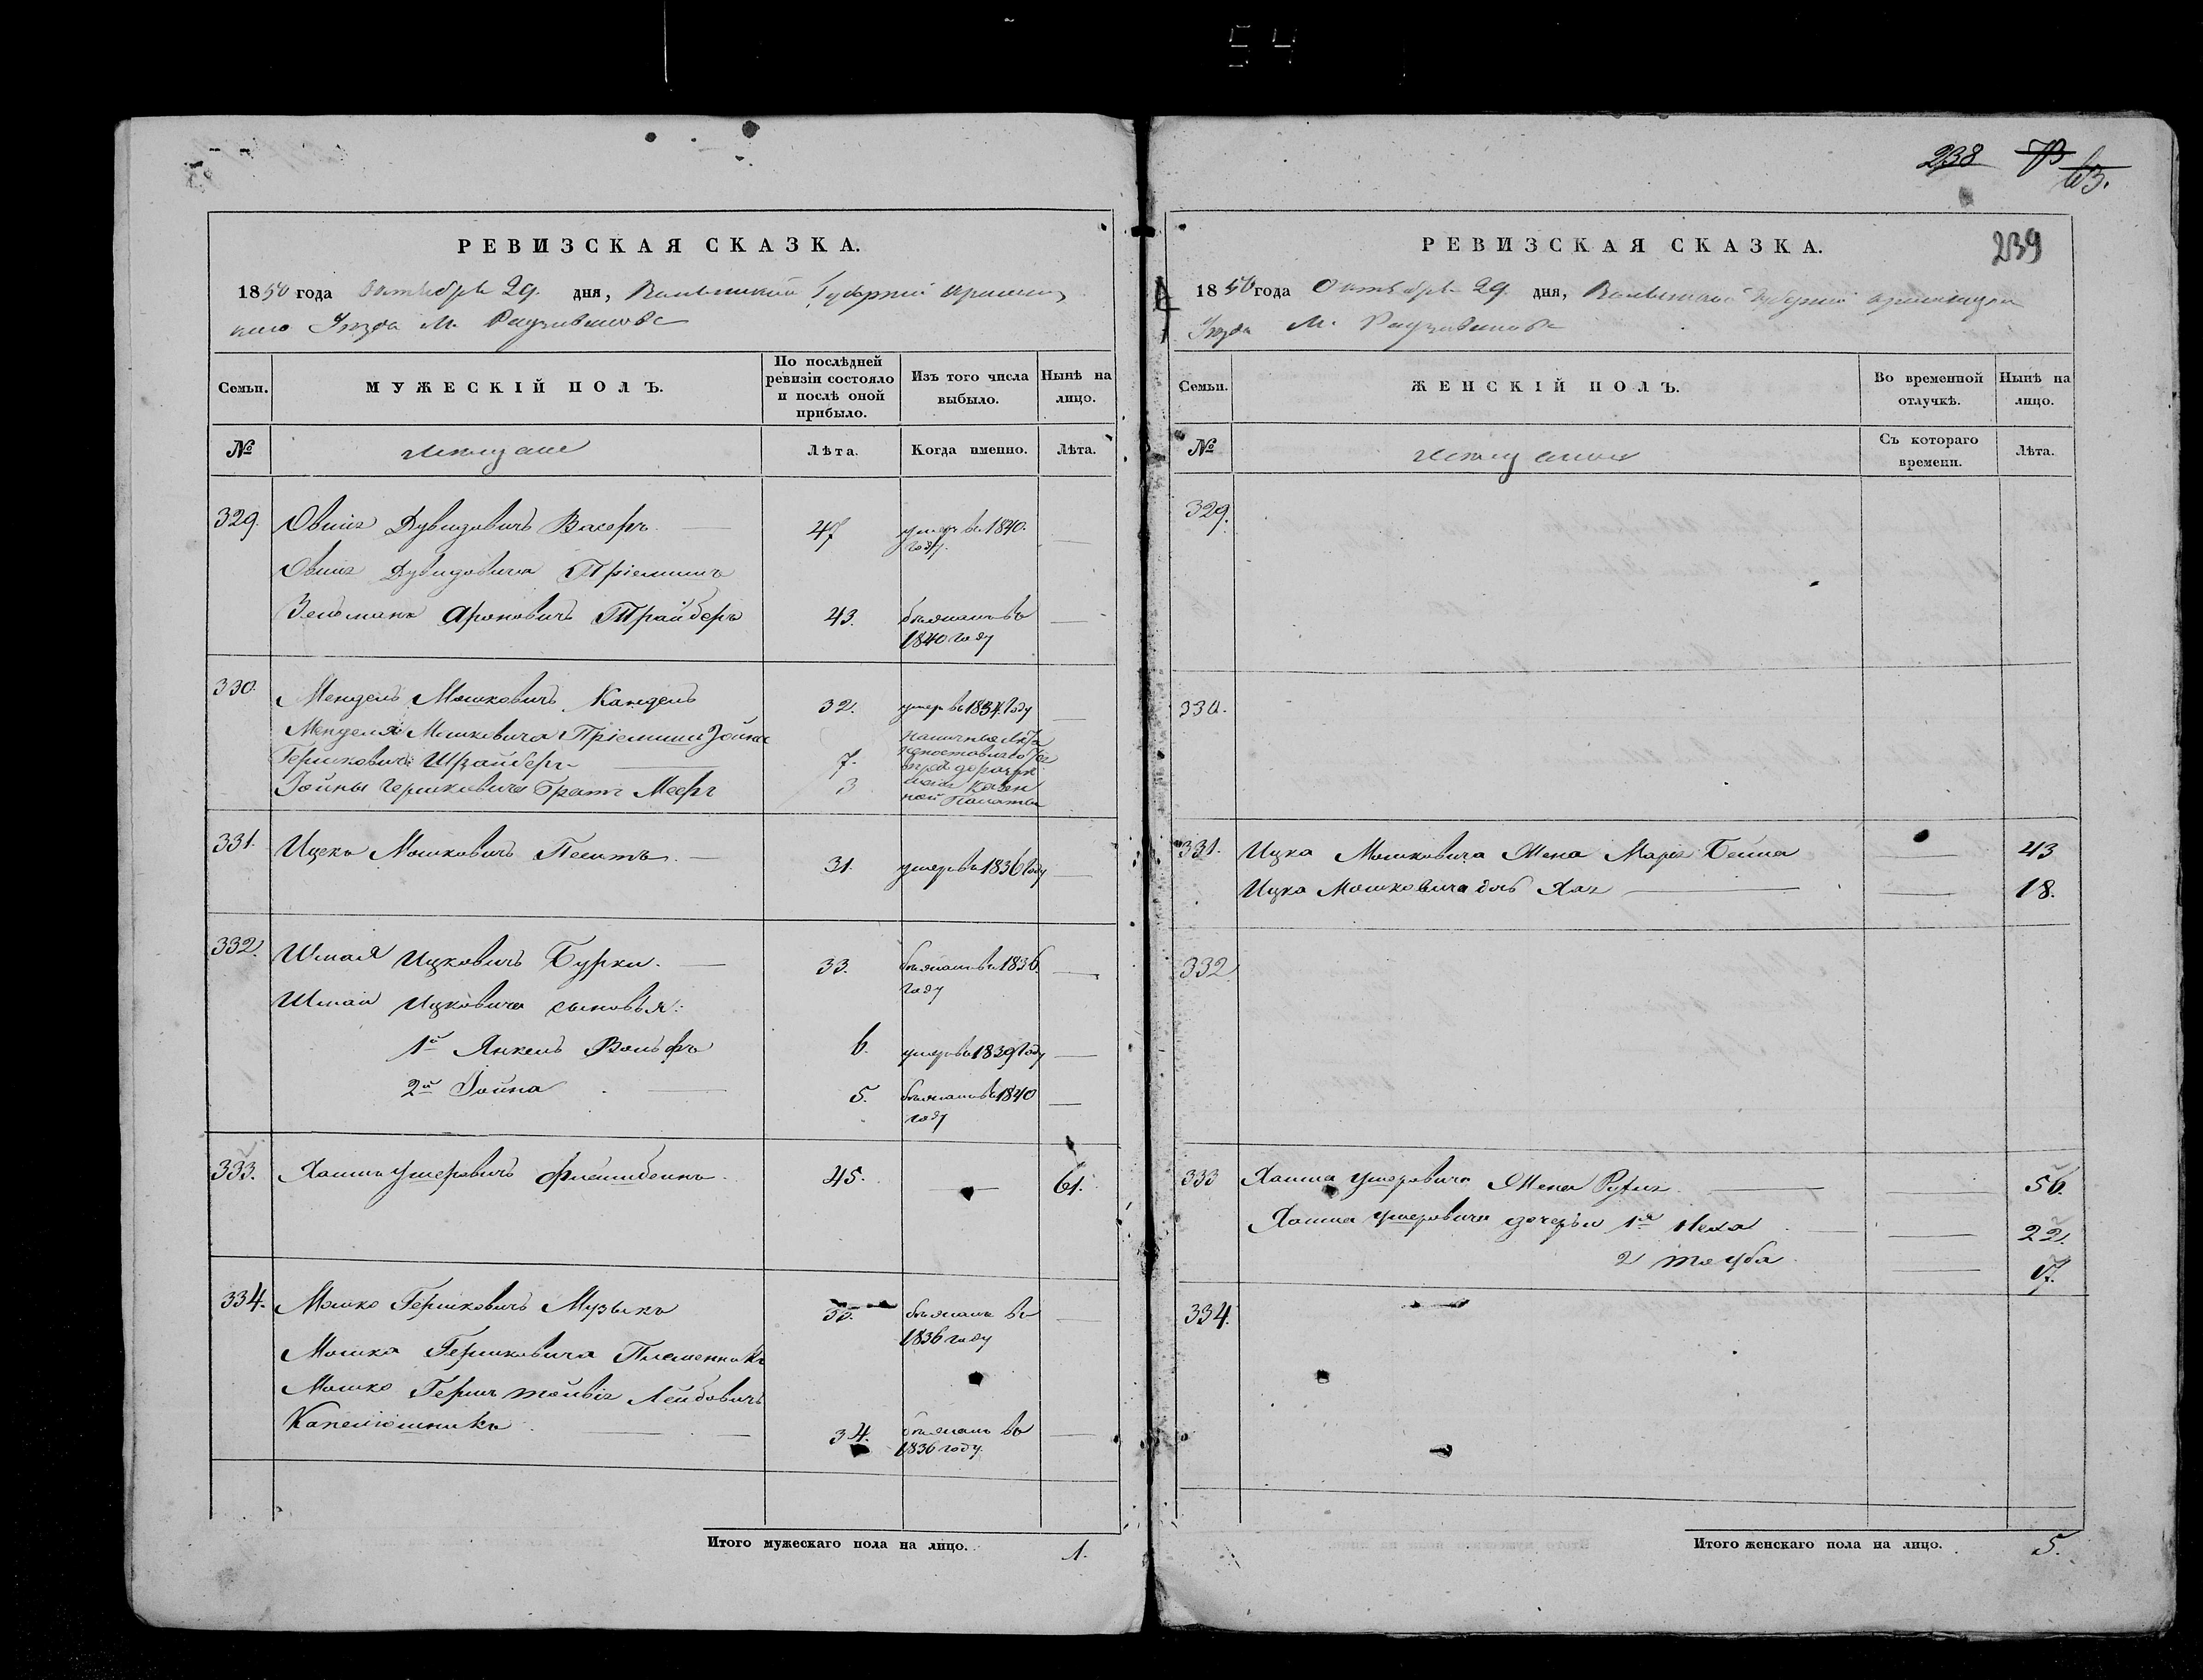 54
РЕВИЗСКАЯ СКАЗКА.
1850 года Октября 29. дня, Волынской Губерніи Кременец
каго Уезда М. Радзивилова
Семьи.
МУЖЕСКІЙ ПОЛЪ.
По послѣдней ревизіи состояло и послѣ оной прибыло.
Изъ того числа выбыло.
Нынѣ на лицо.
№
Мещане
Лѣта.
Когда именно.
Лѣта.
329. Овшіа Дувидовичъ Васеръ 47 умеръ въ 1840. году.
Овшіа Дувидовича Пріемышъ
Зельманъ Ароновичъ Трайберъ 43. бежалъ въ
1840 году
330. Мендель Мошковичъ Кандель 32. умеръ въ 1834. году
Менделя Мошковича Пріемышъ Іойна
Гершковичъ Шрайберъ 7.
Іойны Гершковича Братъ Мееръ 3
ной Палаты
331. Ицко Мошковичъ 31. умеръ въ 1836 году
332. Шмая Ицковичъ Бурки. 33. бежалъ въ 1836.
году
Шмаи Ицковича сыновья:
1й Янкель Вольфъ 6. умеръ въ 1839 году
2й Іойна 5. бежалъ въ 1840
году
333. Хаимъ Ушеровичъ 45. 61.
334. Мошко Гершковичъ Музыка бежалъ въ
1836 году
Мошка Гершковича Племенникъ
Мошко Гершъ Лейбовичъ
Капелюшникъ 34. бежалъ въ
1836 году.
Итого мужескаго пола на лицо. 1.
238 73 63.
239
РЕВИЗСКАЯ СКАЗКА.
1850 года Октября 29. дня, Волынской Губерніи Кременецкаго
Уезда М. Радзивилова
Семьи.
ЖЕНСКІЙ ПОЛЪ.
Во временной отлучкѣ.
Нынѣ на лицо.
№
Мещанки
Съ котораго времени.
Лѣта.
329.
330.
331. Ицка Мошковича Жена Маря Бейла 43
Ицка Мошковича дочь Хая 18.
332
333 Хаима Ушеровича Жена 56.
Хаима Ушеровича дочерьи 1я 22.
2 Тауба 17.
334.
Итого женскаго пола на лицо. 5.